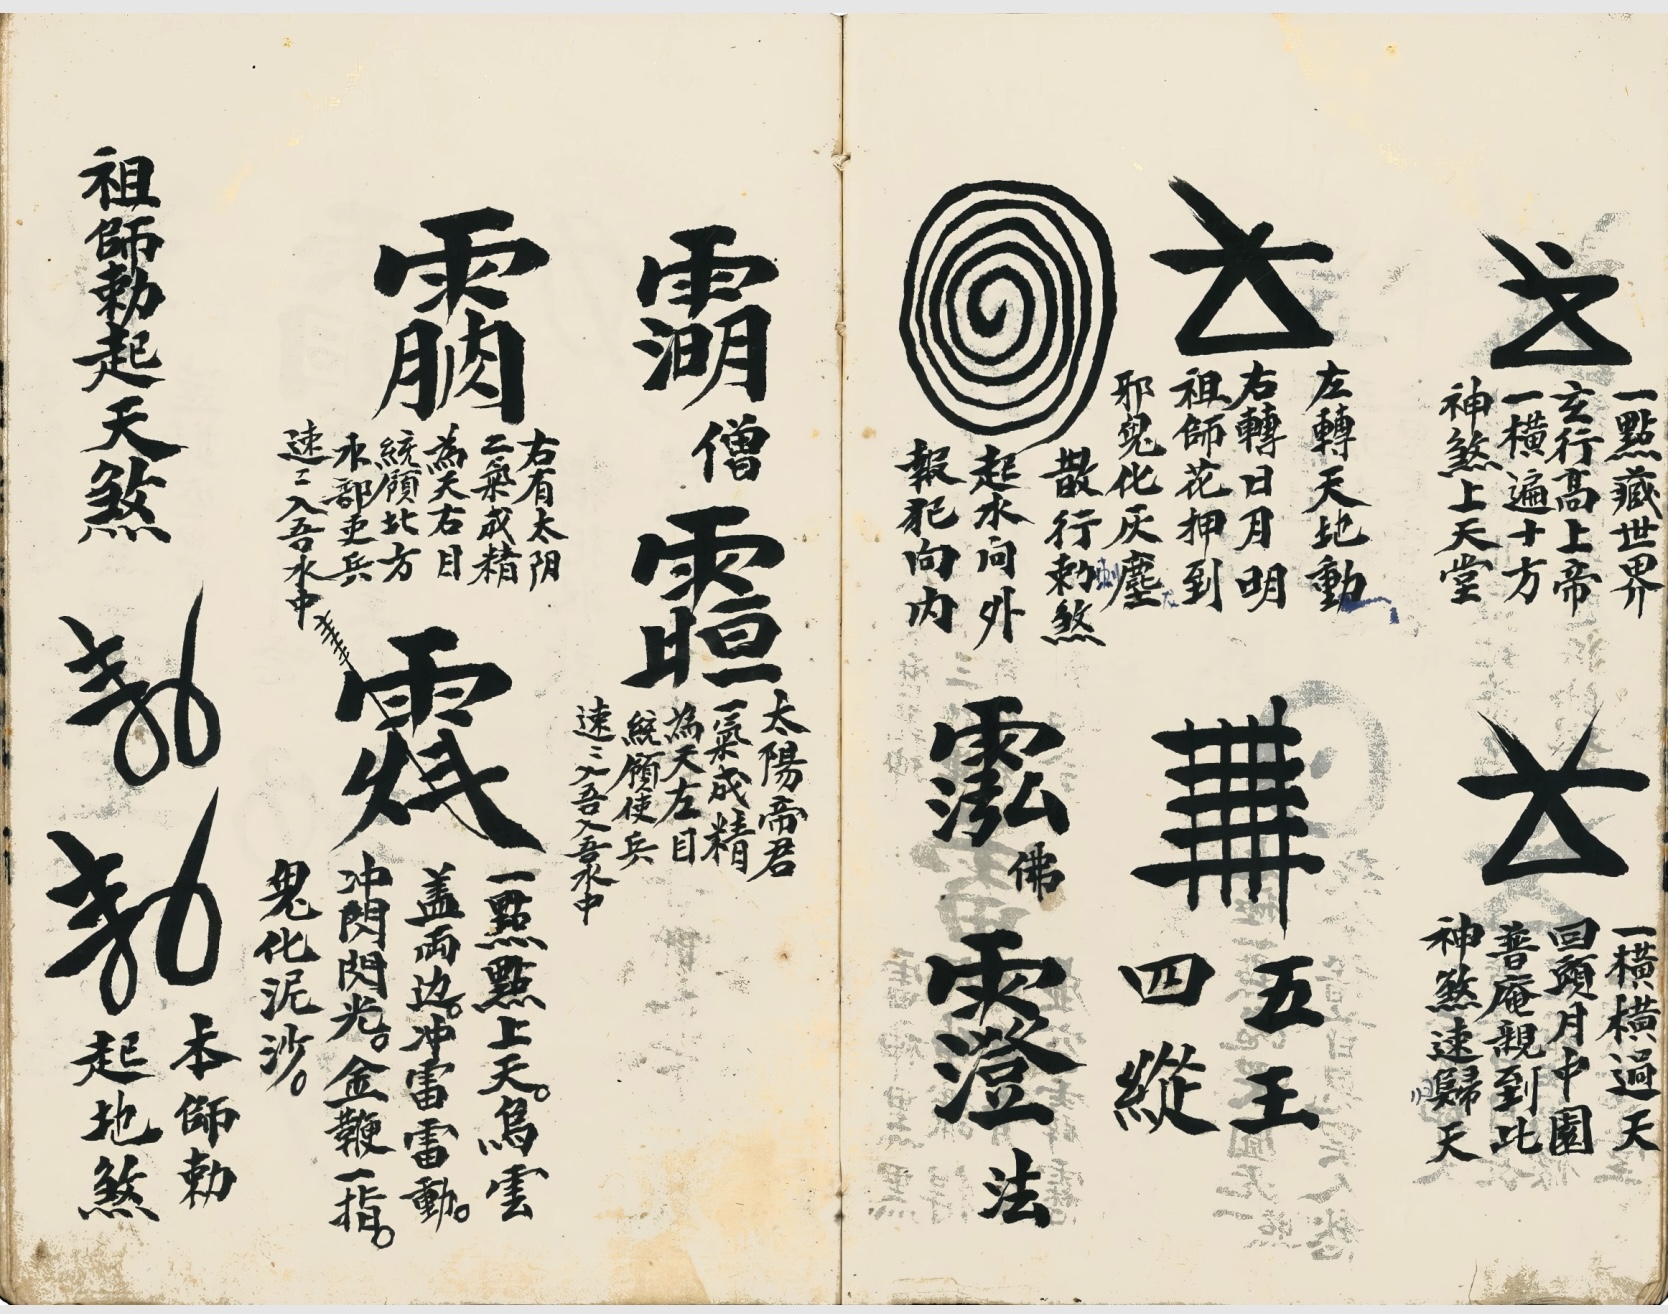 一點藏世界
玄行高上帝
一橫遍十方
神煞上天堂
一橫橫過天
回頭月中園
普庵親到此
神煞速歸天
左轉天地動
右轉日月明
祖師花押到
邪鬼化灰塵
五王
四縱
散行勅煞
起水向外
報犯向内
佛
法
僧
太陽帝君
一氣成精
為天左目
統領使兵
速〻入吾入吾水中
右有太阴
二氣成精
為天右目
統領北方
水部吏兵
速〻入吾水中
一點點上天。烏雲
盖兩边。冲雷雷動。
冲閃閃光。金鞭一指。
鬼化泥沙。
祖師勅起天煞
本師勅
起地煞